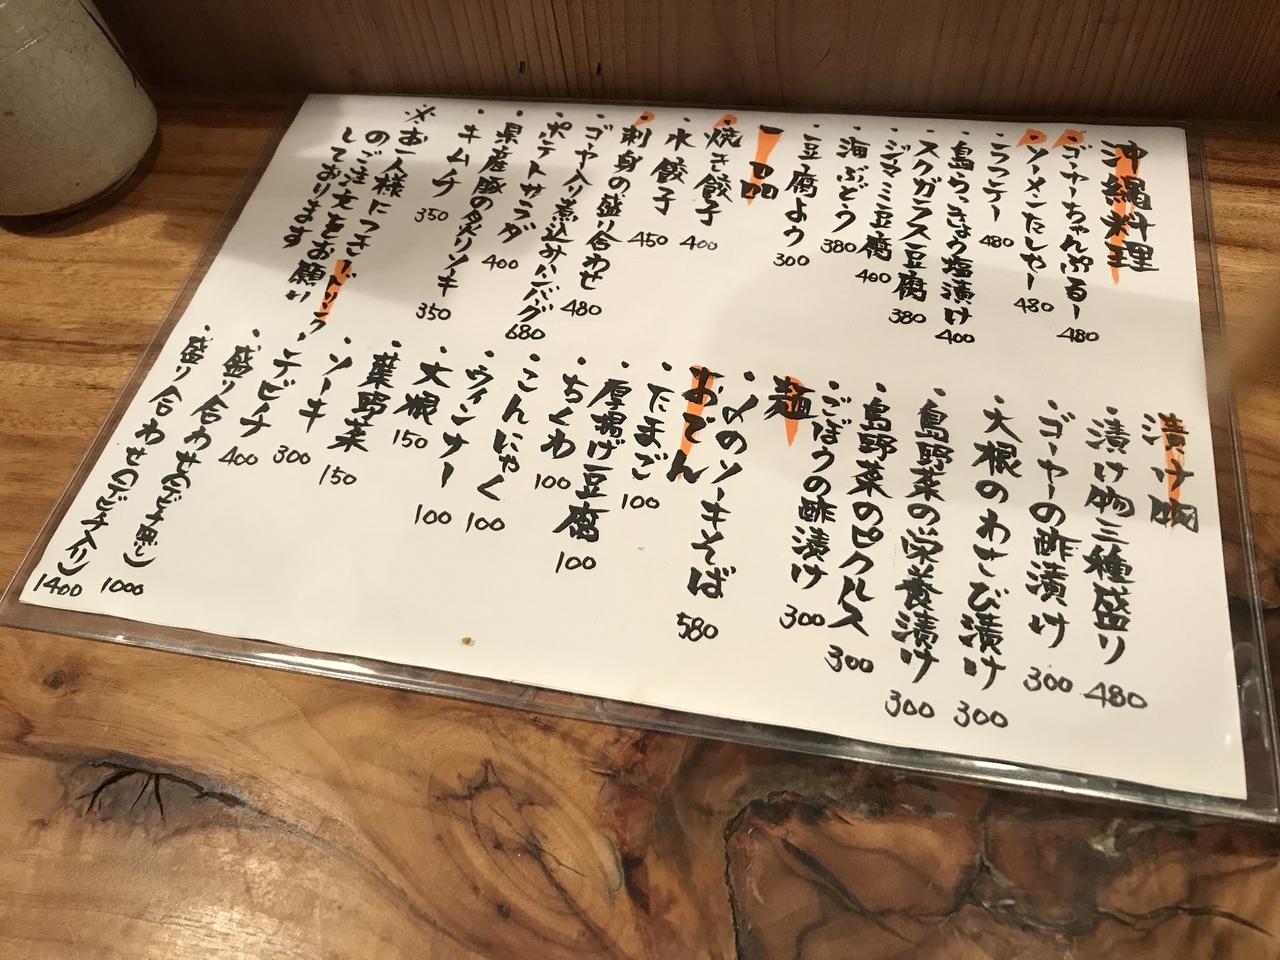 沖縄料理
・ゴーヤーちゃんぷるー 480
・ソーメンたしやー 480
・ラフテー 480
・島らっきょう塩漬け 400
・スクガラス豆腐 380
・ジーマミ豆腐 400
・海ぶどう 380
・豆腐よう 300
一品
・焼き餃子 400
・水餃子 450
・刺身の盛り合わせ
・ゴーヤ入り煮込みハンバーグ 480
・ポテトサラダ 680
・県産豚の炙りソーキ 400
・キムチ 350
350
※お一人様につき1ドリンク
のご注文をお願い
しております
漬け物
・漬け物三種盛り 480
・ゴーヤーの酢漬け 300
・大根のわさび漬け 300
・島野菜の栄養漬け 300
・島野菜のピクルス 300
・ごぼうの酢漬け 300
麺
・〆のソーキそば 580
おでん
・たまご 100
・厚揚げ豆腐 100
・ちくわ 100
・こんにゃく 100
・ウィンナー 100
・大根 150
・葉野菜 150
・ソーキ 300
・テビチ 400
・盛り合わせ(テビチ無し) 1000
・盛り合わせ(テビチ入り) 1400